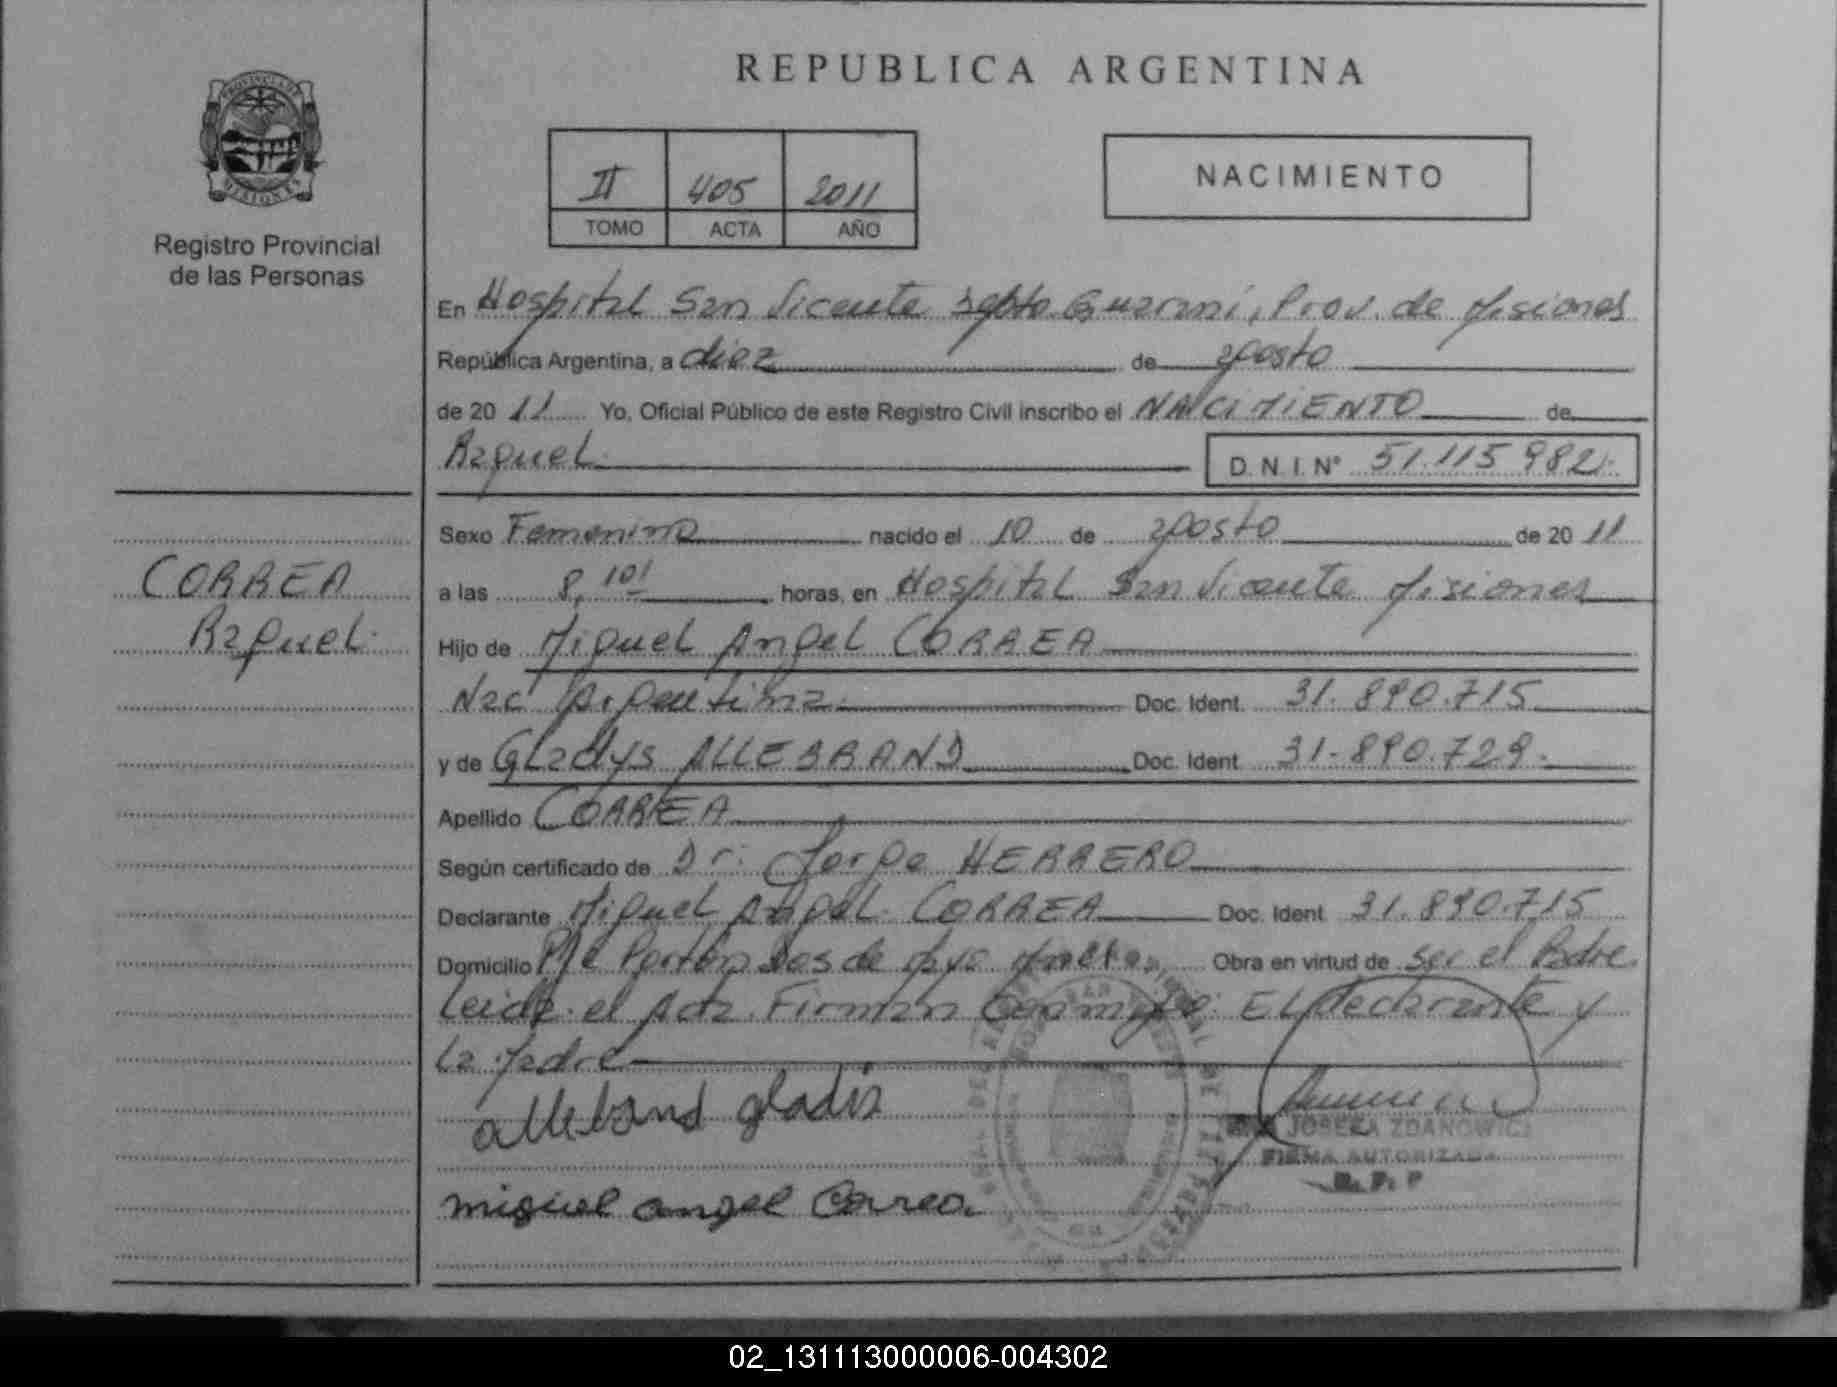 REPUBLICA ARGENTINA
PROVINCIA DE
MISIONES
Registro Provincial
de las Personas
II 405 2011
TOMO ACTA AÑO
NACIMIENTO
En Hospital San Vicente Depto Guarani, Prov. de Misiones
República Argentina, a diez de agosto
de 20 11 Yo, Oficial Público de este Registro Civil inscribo el NACIMIENTO de
Raquel D.N.I. Nº 51.115.982.
Sexo Femenino nacido el 10 de agosto de 20 11
CORREA
Raquel.
a las 8,10' horas, en Hospital San Vicente Misiones
Hijo de Miguel Angel CORREA
Nac Argentina Doc. Ident. 31.890.715
y de Gladys ALLEBRAND Doc. Ident. 31.890.729.
Apellido CORREA
Según certificado de Dr: Jorge HERRERO
Declarante Miguel Angel CORREA Doc. Ident. 31.890.715
Domicilio Pje Porton Dos de Mayo Obra en virtud de ser el Padre.
Leida el Acta. Firman Conmigo: El declarante y
La Madre
alleband gladis
JOSEFA ZDANOWICZ
FIRMA AUTORIZADA
R. P. P
miguel angel Correa
02_131113000006-004302